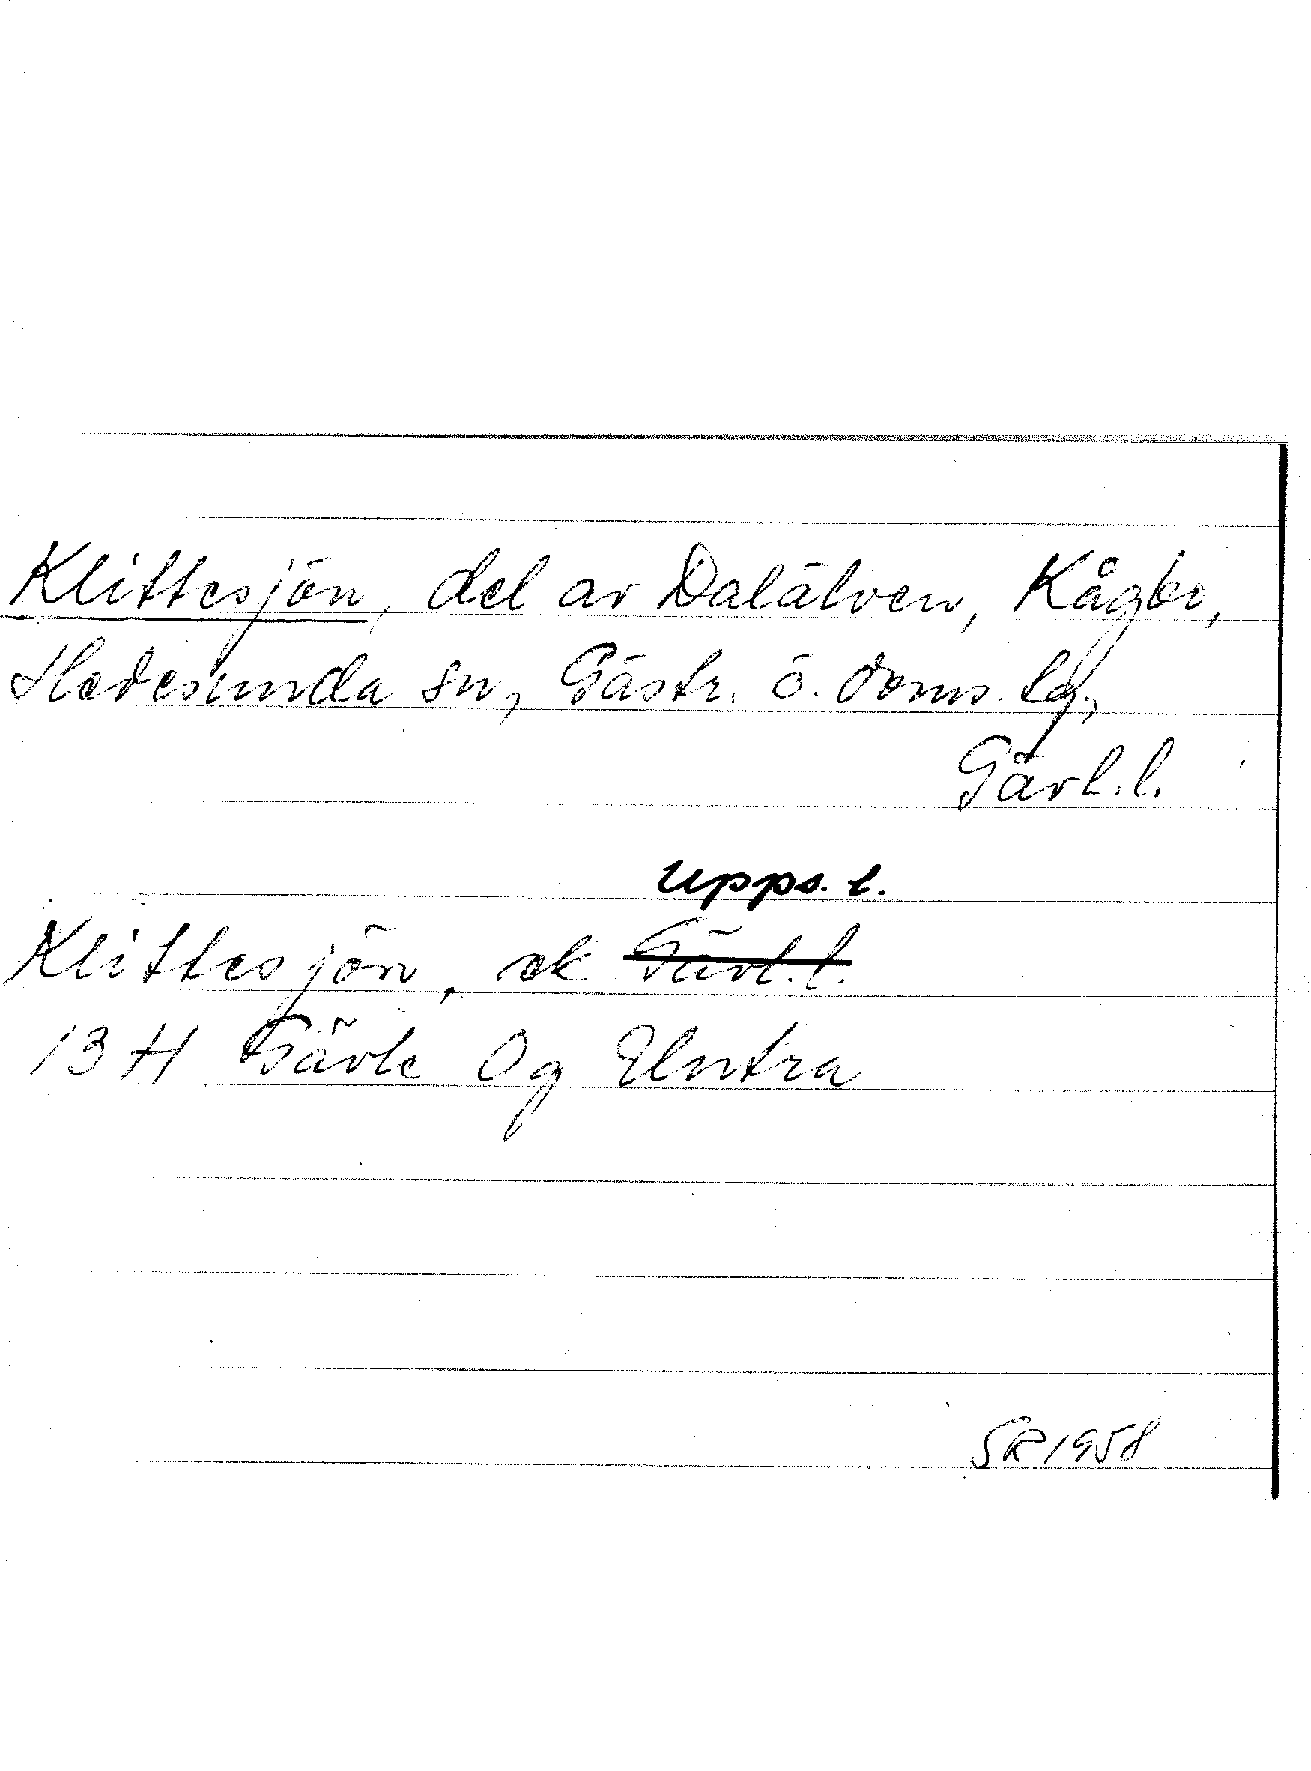 Klittesjön, del av Dalälven, Kågbo,
Hedesunda sn, Gästr. ö. doms. lg.,
Gävl. l.
Upps. l.
Klittesjön, ek Gävl. l.
13 H Gävle 0g Untra
SR 1958